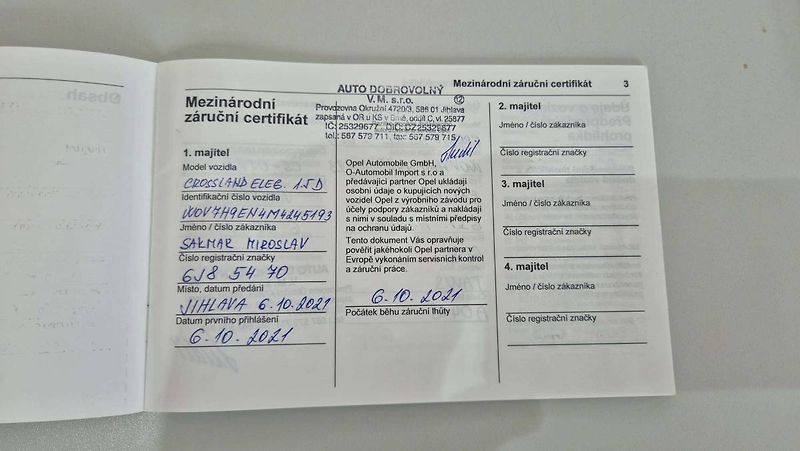 Mezinárodní záruční certifikát 3
Mezinárodní
záruční certifikát
1. majitel
Model vozidla
CROSSLAND ELEG. 1.5D
Identifikační číslo vozidla
W0V7H9EN4M4245193
Jméno / číslo zákazníka
SAKMAR MIROSLAV
Číslo registrační značky
6J8 54 70
Místo, datum předání
JIHLAVA 6.10.2021
Datum prvního přihlášení
6.10.2021
AUTO DOBROVOLNÝ
V.M. s.r.o. 12
Provozovna Okružní 4720/3, 586 01 Jihlava
zapsaná v OR u KS v Brně, oddíl C, vl. 25877
IČ: 25329677, DIČ: CZ25329677
tel.: 567 579 711, fax: 567 579 715
Opel Automobile GmbH,
O-Automobil Import s r.o a
předávající partner Opel ukládají
osobní údaje o kupujících nových
vozidel Opel z výrobního závodu pro
účely podpory zákazníků a nakládají
s nimi v souladu s místními předpisy
na ochranu údajů.
Tento dokument Vás opravňuje
pověřit jakéhokoli Opel partnera v
Evropě vykonáním servisních kontrol
a záruční práce.
6.10.2021
Počátek běhu záruční lhůty
2. majitel
Jméno / číslo zákazníka
Číslo registrační značky
3. majitel
Jméno / číslo zákazníka
Číslo registrační značky
4. majitel
Jméno / číslo zákazníka
Číslo registrační značky